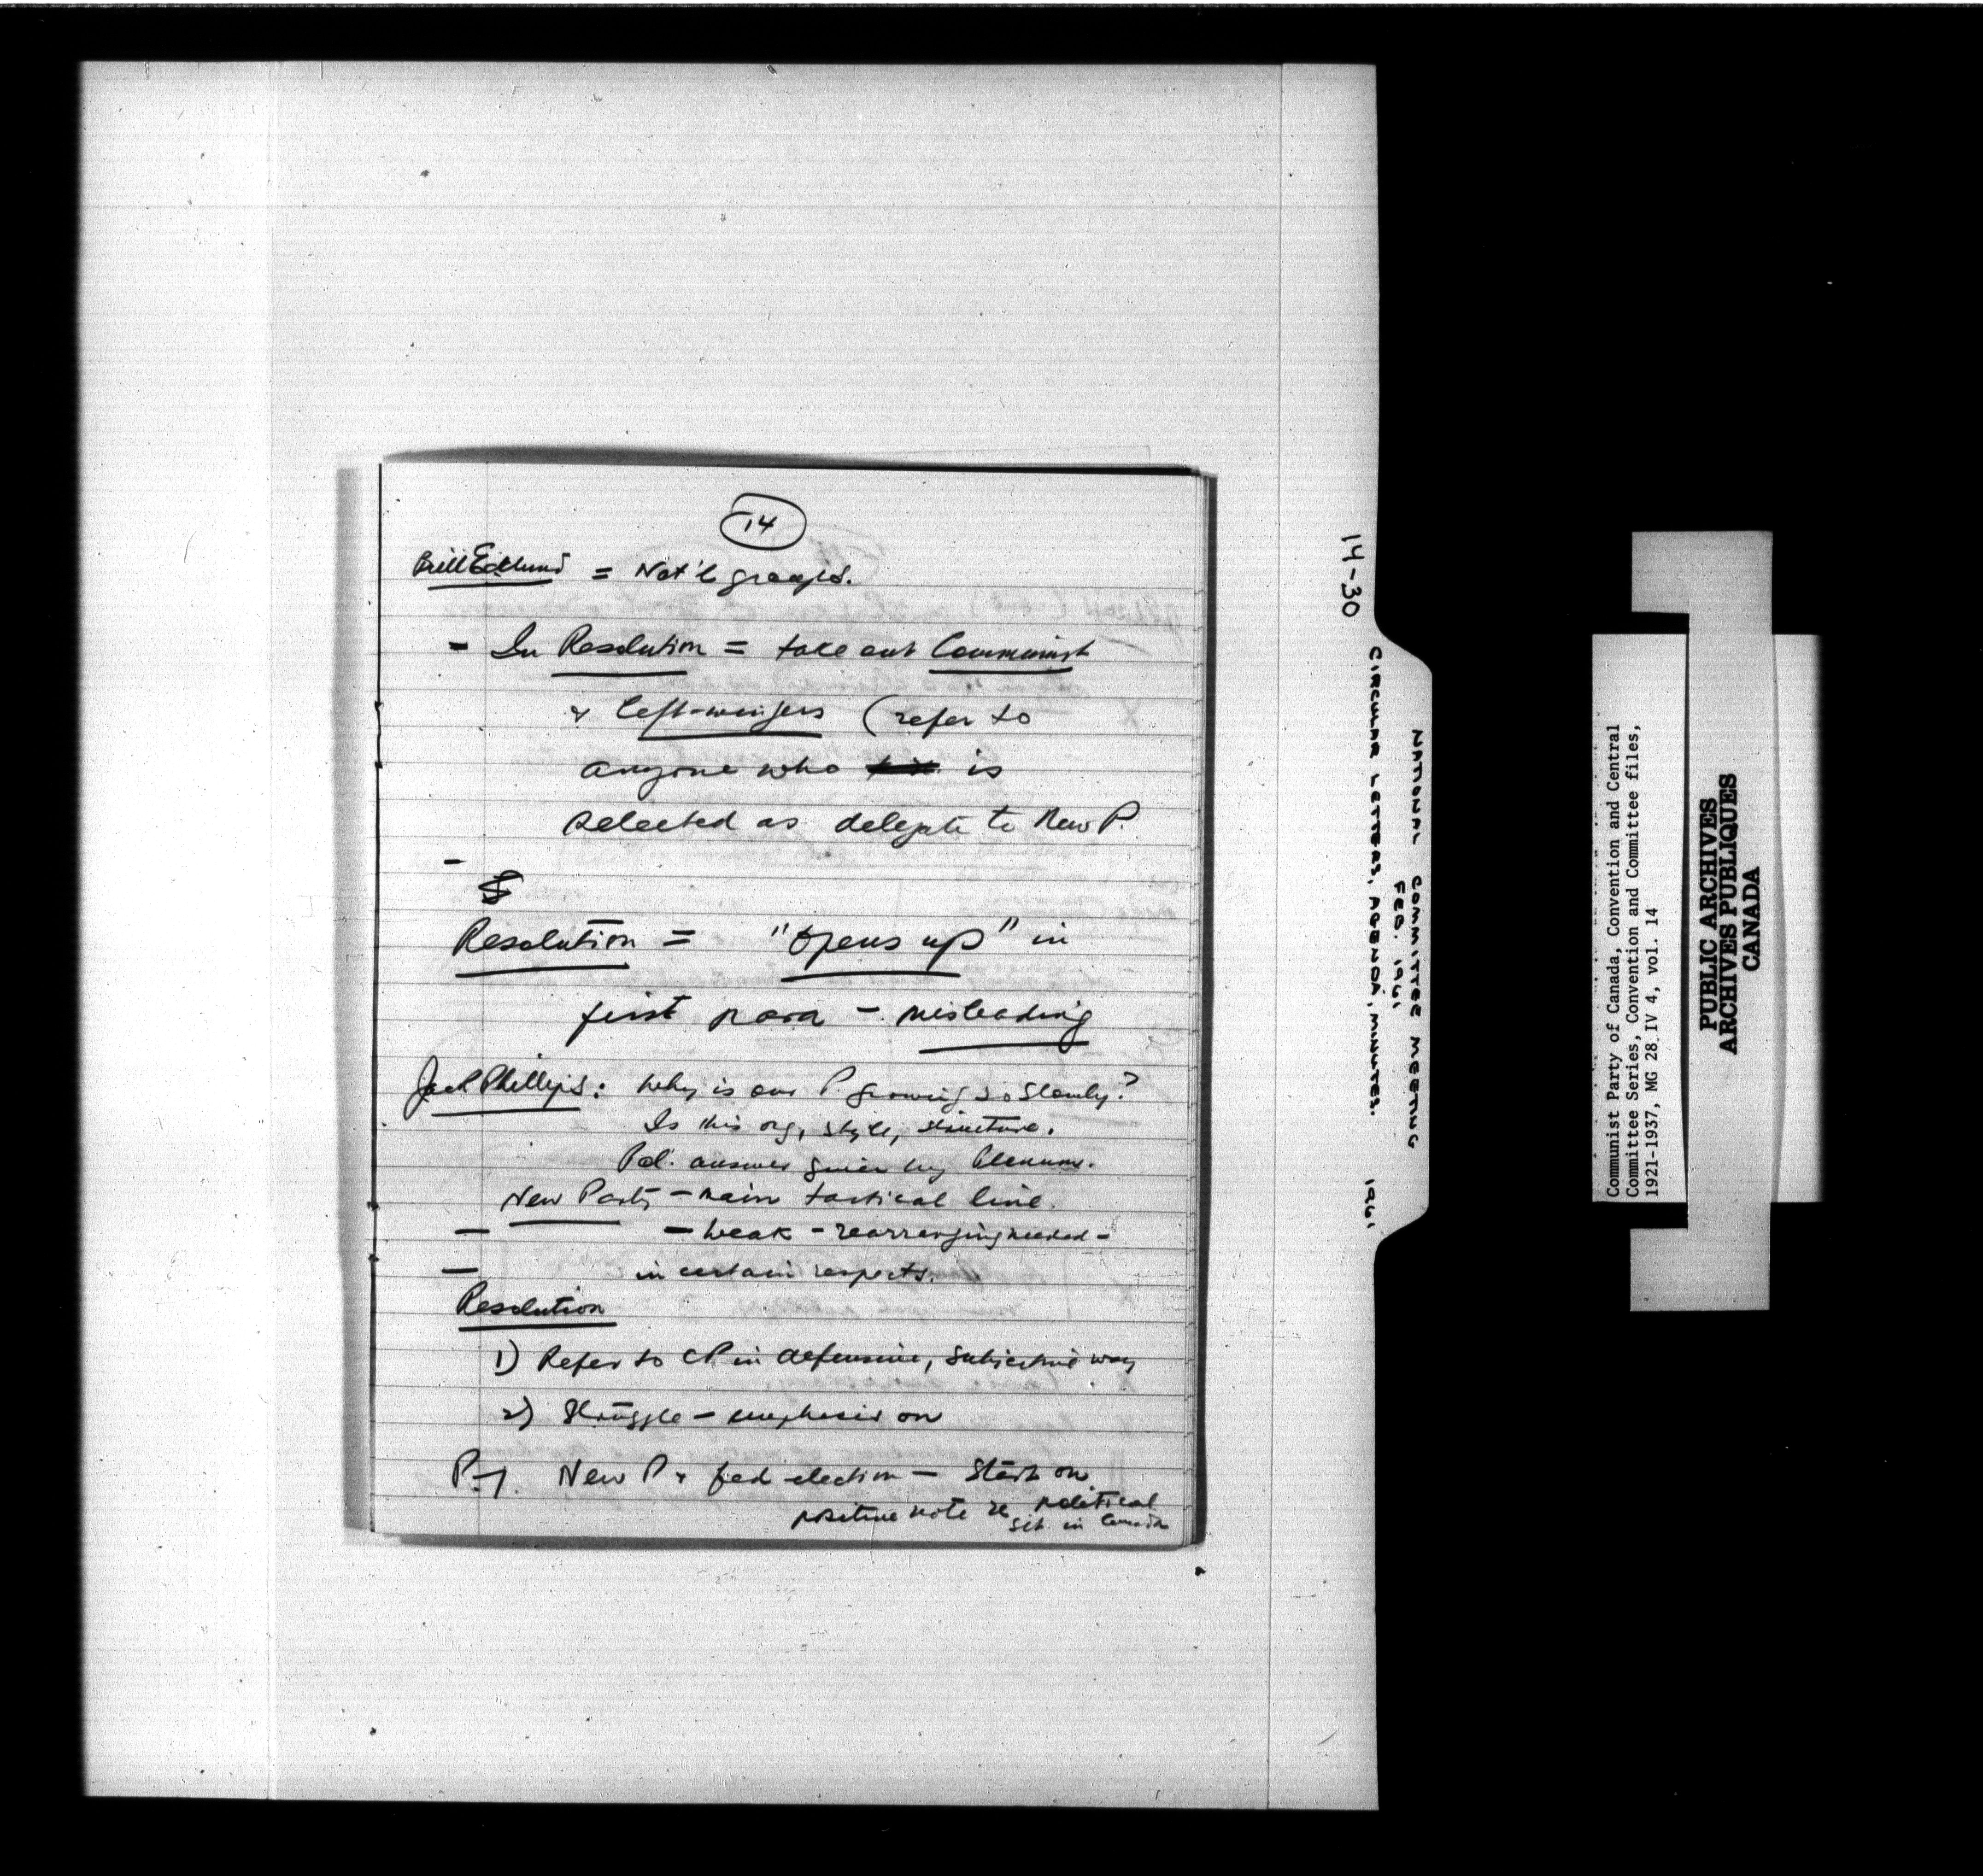 14
Bill Ecklund = Nat'l groups.
- In Resolution = take out Communist
& left-wingers (refer to
anyone who is
selected as delegate to New P.
-
Resolution = "opens up" in
first para - misleading
Jack Phillips: Why is our P. growing so slowly?
Is this org, style, structure.
Pol. answer given by Plenums.
New Party - main tactical line.
- - weak - rearranging needed -
- in certain respects.
Resolution
1) Refer to CP in defensive, subjective way
2) Struggle - emphasis on
P-7. New P & fed election - Start on
positive note re political
sit. in Canada
14-30
NATIONAL COMMITTEE MEETING
FEB. 1961,
CIRCULAR LETTERS, AGENDA, MINUTES. 1961
Communist Party of Canada, Convention and Central
Committee Series, Convention and Committee files,
1921-1937, MG 28 IV 4, vol. 14
PUBLIC ARCHIVES
ARCHIVES PUBLIQUES
CANADA